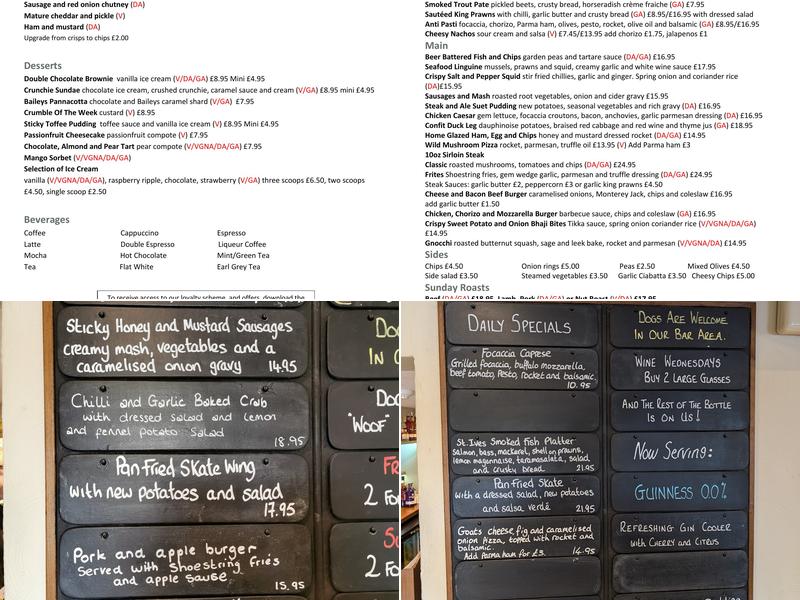 Sausage and red onion chutney (DA)
Mature cheddar and pickle (V)
Ham and mustard (DA)
Upgrade from crisps to chips £2.00
Desserts
Double Chocolate Brownie vanilla ice cream (V/DA/GA) £8.95 Mini £4.95
Crunchie Sundae chocolate ice cream, crushed crunchie, caramel sauce and cream (V/GA) £8.95 mini £4.95
Baileys Pannacotta chocolate and Baileys caramel shard (V/GA) £7.95
Crumble Of The Week custard (V) £8.95
Sticky Toffee Pudding toffee sauce and vanilla ice cream (V) £8.95 Mini £4.95
Passionfruit Cheesecake passionfruit compote (V) £7.95
Chocolate, Almond and Pear Tart pear compote (V/VGNA/DA/GA) £7.95
Mango Sorbet (V/VGNA/DA/GA)
Selection of Ice Cream
vanilla (V/VGNA/DA/GA), raspberry ripple, chocolate, strawberry (V/GA) three scoops £6.50, two scoops
£4.50, single scoop £2.50
Beverages
Coffee Cappuccino Espresso
Latte Double Espresso Liqueur Coffee
Mocha Hot Chocolate Mint/Green Tea
Tea Flat White Earl Grey Tea
To receive access to our loyalty scheme, and offers, download the
Smoked Trout Pate pickled beets, crusty bread, horseradish crème fraiche (GA) £7.95
Sautéed King Prawns with chilli, garlic butter and crusty bread (GA) £8.95/£16.95 with dressed salad
Anti Pasti focaccia, chorizo, Parma ham, olives, pesto, rocket, olive oil and balsamic (GA) £8.95/£16.95
Cheesy Nachos sour cream and salsa (V) £7.45/£13.95 add chorizo £1.75, jalapenos £1
Main
Beer Battered Fish and Chips garden peas and tartare sauce (DA) £16.95
Seafood Linguine mussels, prawns and squid, creamy garlic and white wine sauce £17.95
Crispy Salt and Pepper Squid stir fried chillies, garlic and ginger. Spring onion and coriander rice
(DA)£15.95
Sausages and Mash roasted root vegetables, onion and cider gravy £15.95
Steak and Ale Suet Pudding new potatoes, seasonal vegetables and rich gravy (DA) £16.95
Chicken Caesar gem lettuce, focaccia croutons, bacon, anchovies, garlic parmesan dressing (DA) £16.95
Confit Duck Leg dauphinoise potatoes, braised red cabbage and red wine and thyme jus (GA) £18.95
Home Glazed Ham, Egg and Chips honey and mustard dressed rocket (DA/GA) £14.95
Wild Mushroom Pizza rocket, parmesan, truffle oil £13.95 (V) Add Parma ham £3
10oz Sirloin Steak
Classic roasted mushrooms, tomatoes and chips (DA/GA) £24.95
Frites Shoestring fries, gem wedge garlic, parmesan and truffle dressing (DA/GA) £24.95
Steak Sauces: garlic butter £2, peppercorn £3 or garlic king prawns £4.50
Cheese and Bacon Beef Burger caramelised onions, Monterey Jack, chips and coleslaw £16.95
add garlic butter £1.50
Chicken, Chorizo and Mozzarella Burger barbecue sauce, chips and coleslaw (GA) £16.95
Crispy Sweet Potato and Onion Bhaji Bites Tikka sauce, spring onion coriander rice (V/VGNA/DA/GA)
£14.95
Gnocchi roasted butternut squash, sage and leek bake, rocket and parmesan (V/V/DA) £14.95
Sides
Chips £4.50 Onion rings £5.00 Peas £2.50 Mixed Olives £4.50
Side salad £3.50 Steamed vegetables £3.50 Garlic Ciabatta £3.50 Cheesy Chips £5.00
Sunday Roasts
Beef (DA/GA) £18.95, Lamb, Pork (DA/GA) or Nut Roast (V/DA) £17.95
Sticky Honey and Mustard Sausages
creamy mash, vegetables and a
caramelised onion gravy 14.95
Chilli and Garlic Baked Crab
with dressed salad and lemon
and fennel potato salad
18.95
Pan Fried Skate Wing
with new potatoes and salad
17.95
Pork and apple burger
Served with shoestring fries
and apple sause
15.95
IN
"WOOF"
2 FO
2 FO
DAILY SPECIALS
Focaccia Caprese
Grilled focaccia, buffalo mozzarella,
beef tomato, Pesto, rocket and balsamic.
10.95
St.Ives Smoked Fish Platter
Salmon, bass, mackerel, shell on prawns,
lemon mayonnaise, taramasalata, salad
and crusty bread. 21.95
Pan Fried Skate
with a dressed salad, new potatoes
and salsa verdé
21.95
Goats cheese, fig and caramelised
onion pizza, topped with rocket and
balsamic.
Add Parma ham for £3. 14.95
DOGS ARE WELCOME
IN OUR BAR AREA.
WINE WEDNESDAYS
BUY 2 LARGE GLASSES
AND THE REST OF THE BOTTLE
IS ON US!
NOW SERVING:
GUINNESS 0.0%
REFRESHING GIN COOLER
WITH CHERRY AND CITRUS